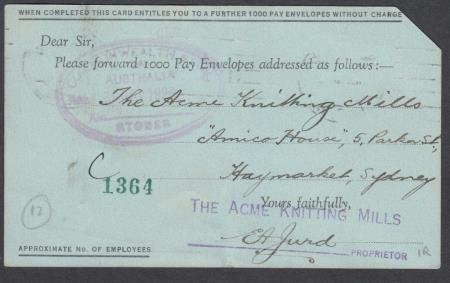 WHEN COMPLETED THIS CARD ENTITLES YOU TO A FURTHER 1000 PAY ENVELOPES WITHOUT CHARGE
Dear Sir,
Please forward 1000 Pay Envelopes addressed as follows:—
AUSTRALIA
STORES
The Acme Knitting Mills
"Amico House", 5, Parker St,
Haymarket, Sydney
1364
Yours faithfully,
THE ACME KNITTING MILLS
PROPRIETOR
12
APPROXIMATE NO. OF EMPLOYEES